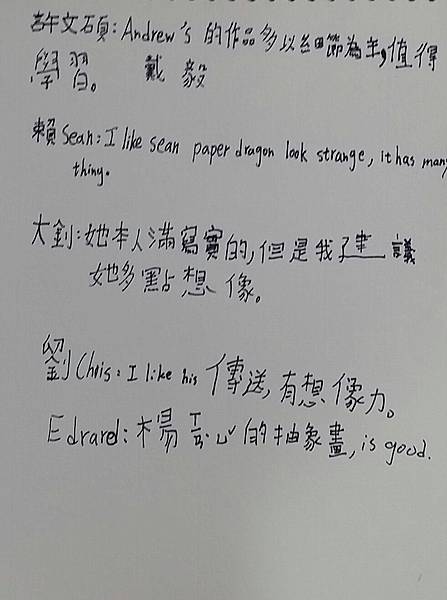 許文碩:Andrew's 的作品多以細節為主,值得
學習。 戴毅
賴Sean:I like sean paper dragon look strange, it has many
thing.
大釗:她本人滿寫實的,但是我建議
她多點想像。
劉Chris:I like his 傳送,有想像力。
Edrard:楊ㄎㄞˇ的抽象畫, is good.